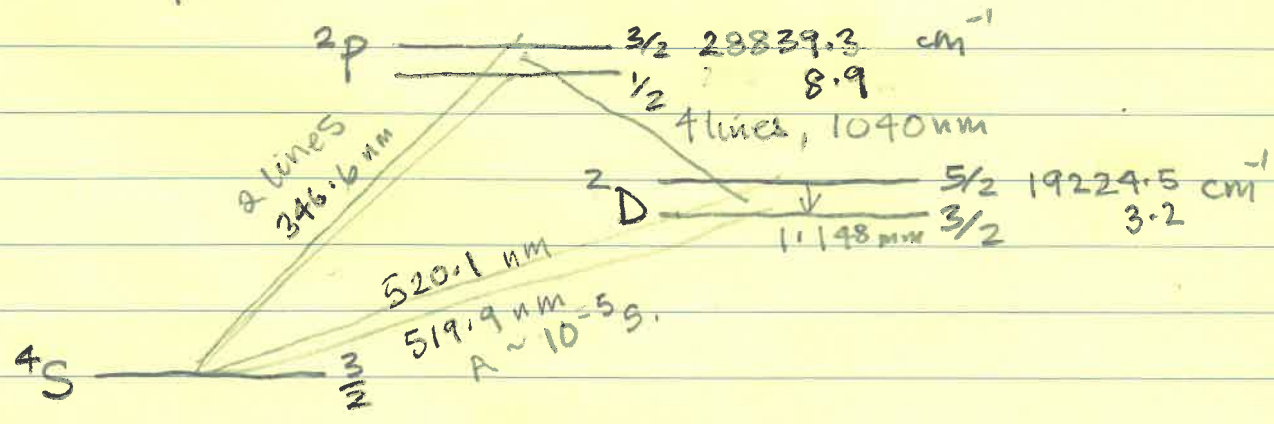 ²P 3/2 28839.3 cm⁻¹
1/2 8.9
4 lines, 1040 nm
2 lines
346.6 nm
²D 5/2 19224.5 cm⁻¹
3/2 3.2
1.148 mm
520.1 nm
519.9 nm
A ~ 10⁻⁵ s.
⁴S 3/2